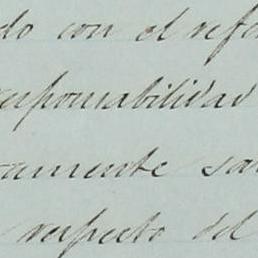 do con el refe
responsabilidad
tamente sa
respecto del